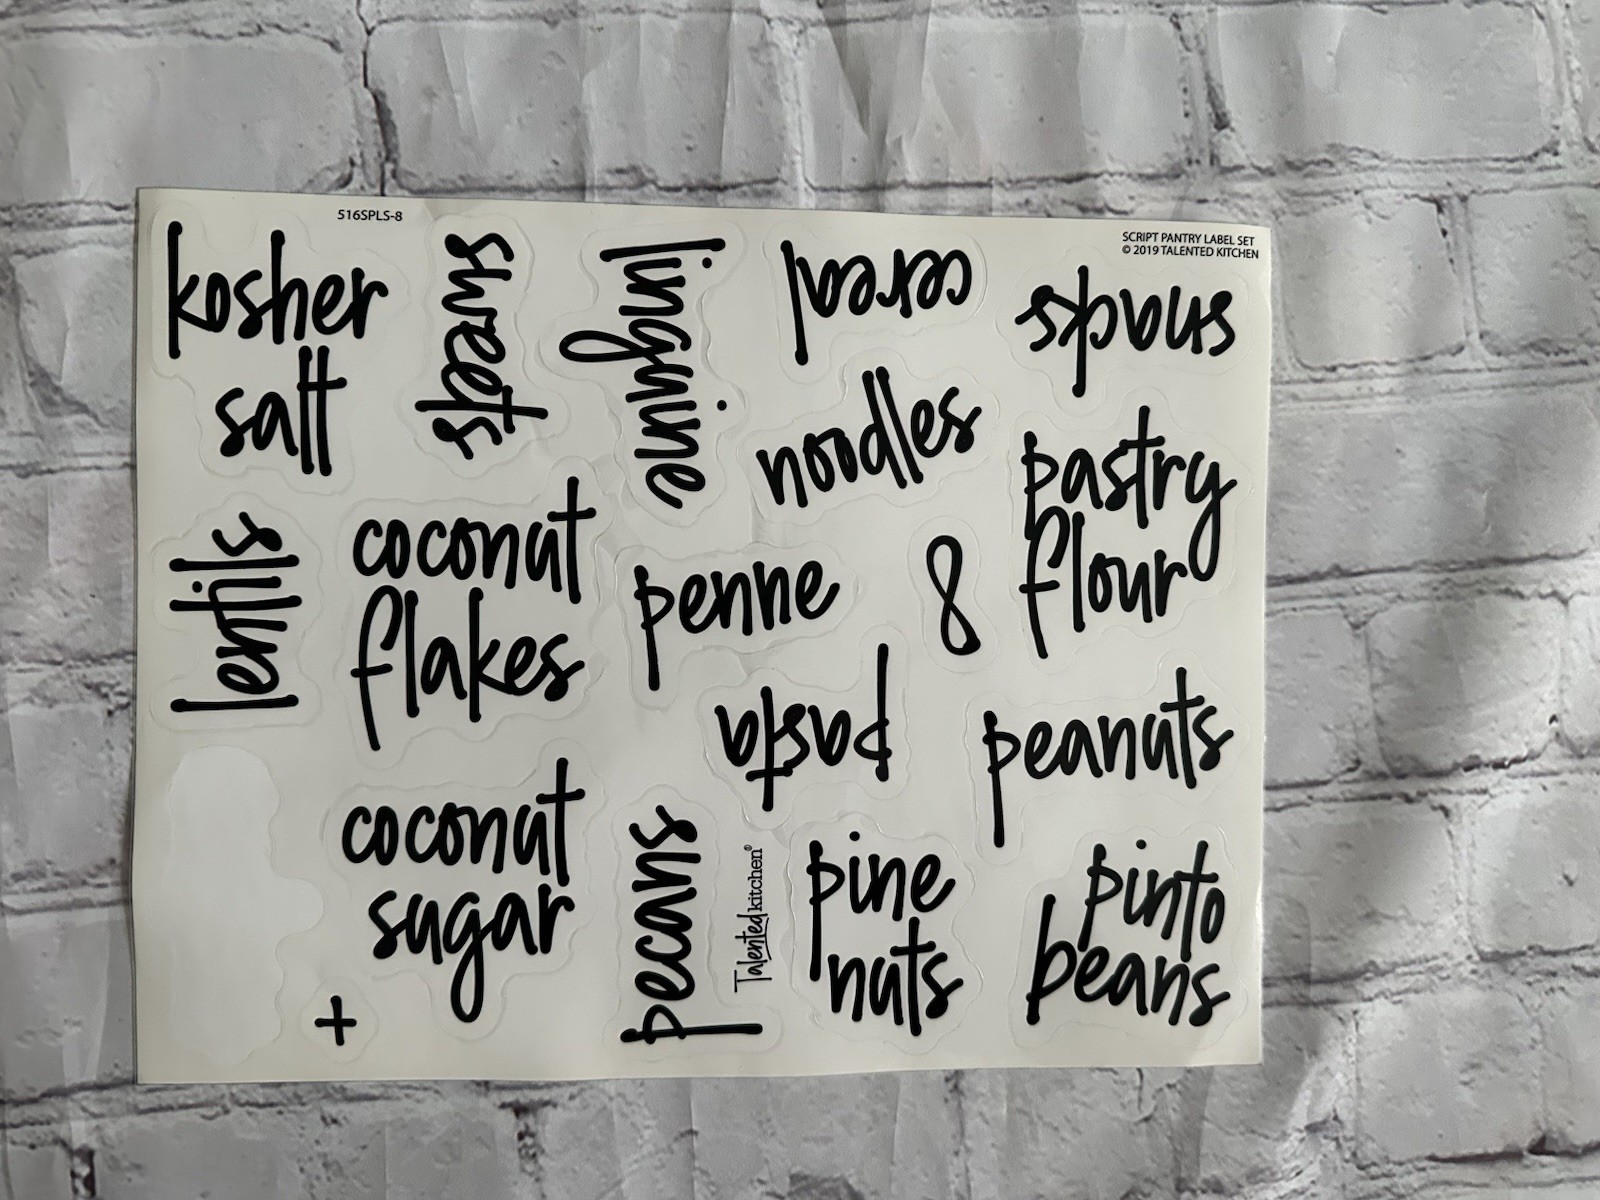 516SPLS-8
SCRIPT PANTRY LABEL SET
© 2019 TALENTED KITCHEN
kosher
salt
sweets
linguine
cereal
snacks
noodles
pastry
flour
lentils
coconut
flakes
penne
8
pasta
peanuts
coconut
sugar
pecans
Talented kitchen®
pine
nuts
pinto
beans
+